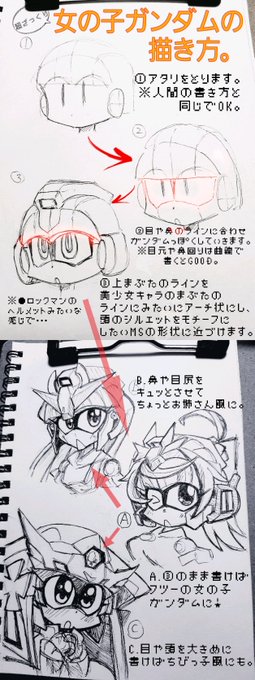 超ざっくり
女の子ガンダムの
描き方。
①
①アタリをとります。
※人間の書き方と
同じでOK。
②
②目や鼻のラインに合わせ
ガンダムっぽくしていきます。
※目元や鼻回りは曲線で
書くとGOOD。
③
※●ロックマンの
ヘルメットみたいな
感じで…
③上まぶたのラインを
美少女キャラのまぶたの
ラインにみたいにアーチ状にし、
頭のシルエットをモチーフに
したいMSの形状に近づけます。
B.鼻や目尻を
キュッとさせて
ちょっとお姉さん風に。
Ⓐ
A.③のまま書けば
フツーの女の子
ガンダムに★
Ⓒ
C.目や頭を大きめに
書けばちびっ子風にも。